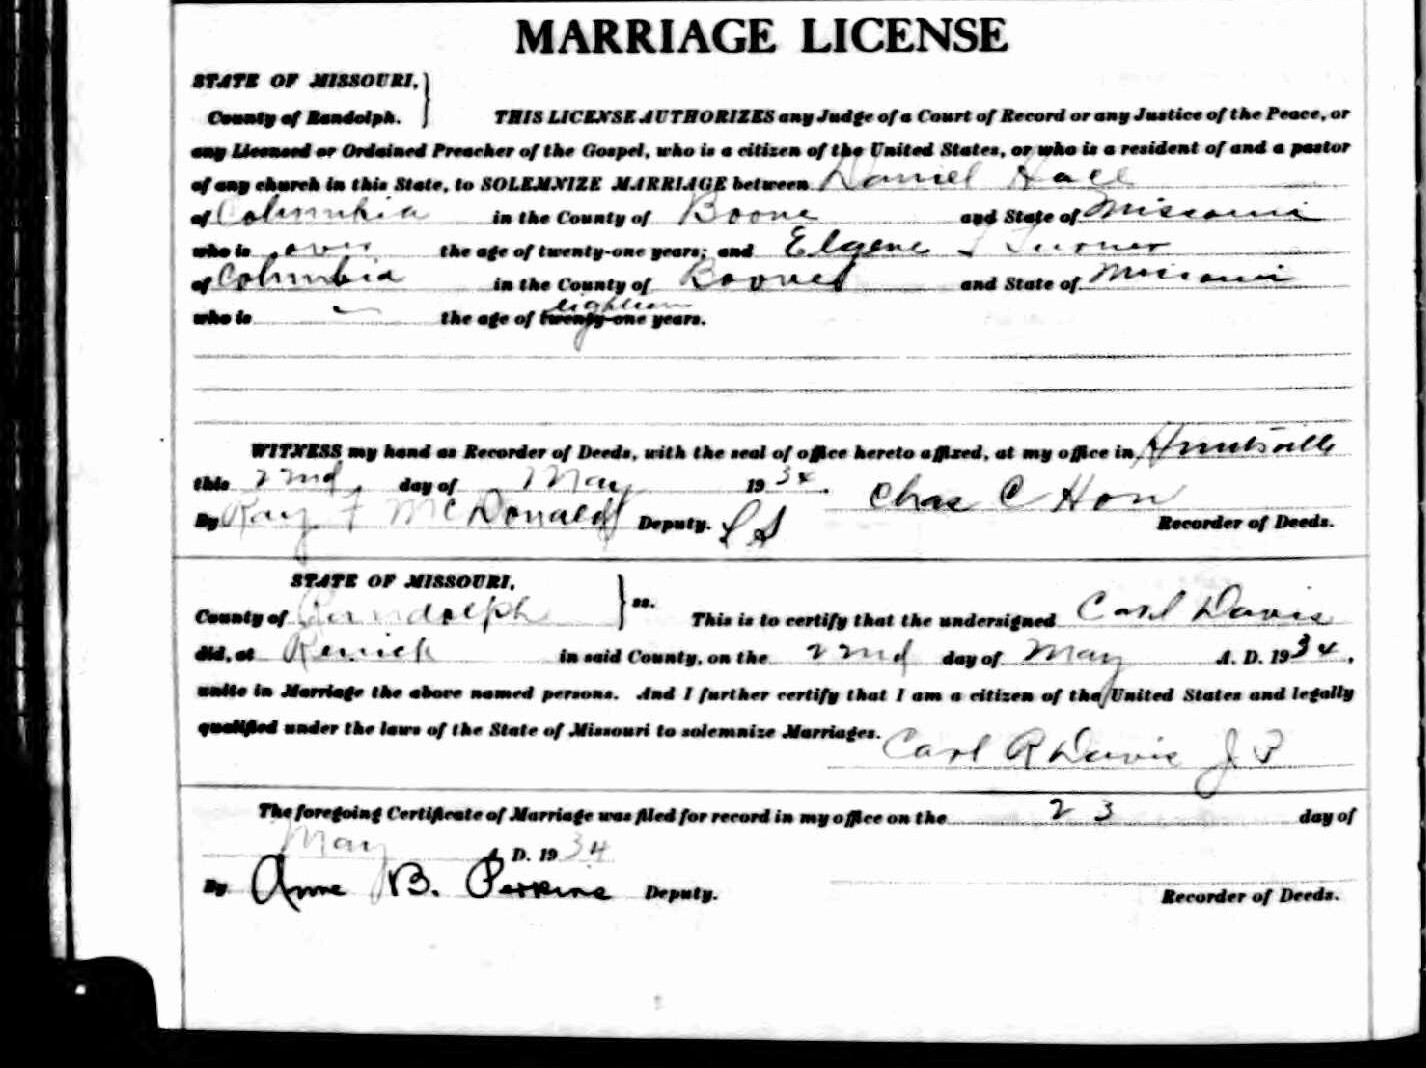 MARRIAGE LICENSE
STATE OF MISSOURI,
County of Randolph.
THIS LICENSE AUTHORIZES any Judge of a Court of Record or any Justice of the Peace, or
any Licensed or Ordained Preacher of the Gospel, who is a citizen of the United States, or who is a resident of and a pastor
of any church in this State, to SOLEMNIZE MARRIAGE between Daniel Hall
of Columbia in the County of Boone and State of Missouri
who is over the age of twenty-one years; and Elgene Turner
of Columbia in the County of Boone and State of Missouri
who is " the age of twenty-one eighteen years.
WITNESS my hand as Recorder of Deeds, with the seal of office hereto affixed, at my office in Huntsville
this 22nd day of May 1934.
Chas C Hon
By Ray F McDonald Deputy. LS Recorder of Deeds.
STATE OF MISSOURI,
County of Randolph ss. This is to certify that the undersigned Carl Davis
did, at Renick in said County, on the 22nd day of May A. D. 1934,
unite in Marriage the above named persons. And I further certify that I am a citizen of the United States and legally
qualified under the laws of the State of Missouri to solemnize Marriages.
Carl R Davis J P
The foregoing Certificate of Marriage was filed for record in my office on the 23 day of
May A. D. 1934
By Anne B. Perkins Deputy. Recorder of Deeds.